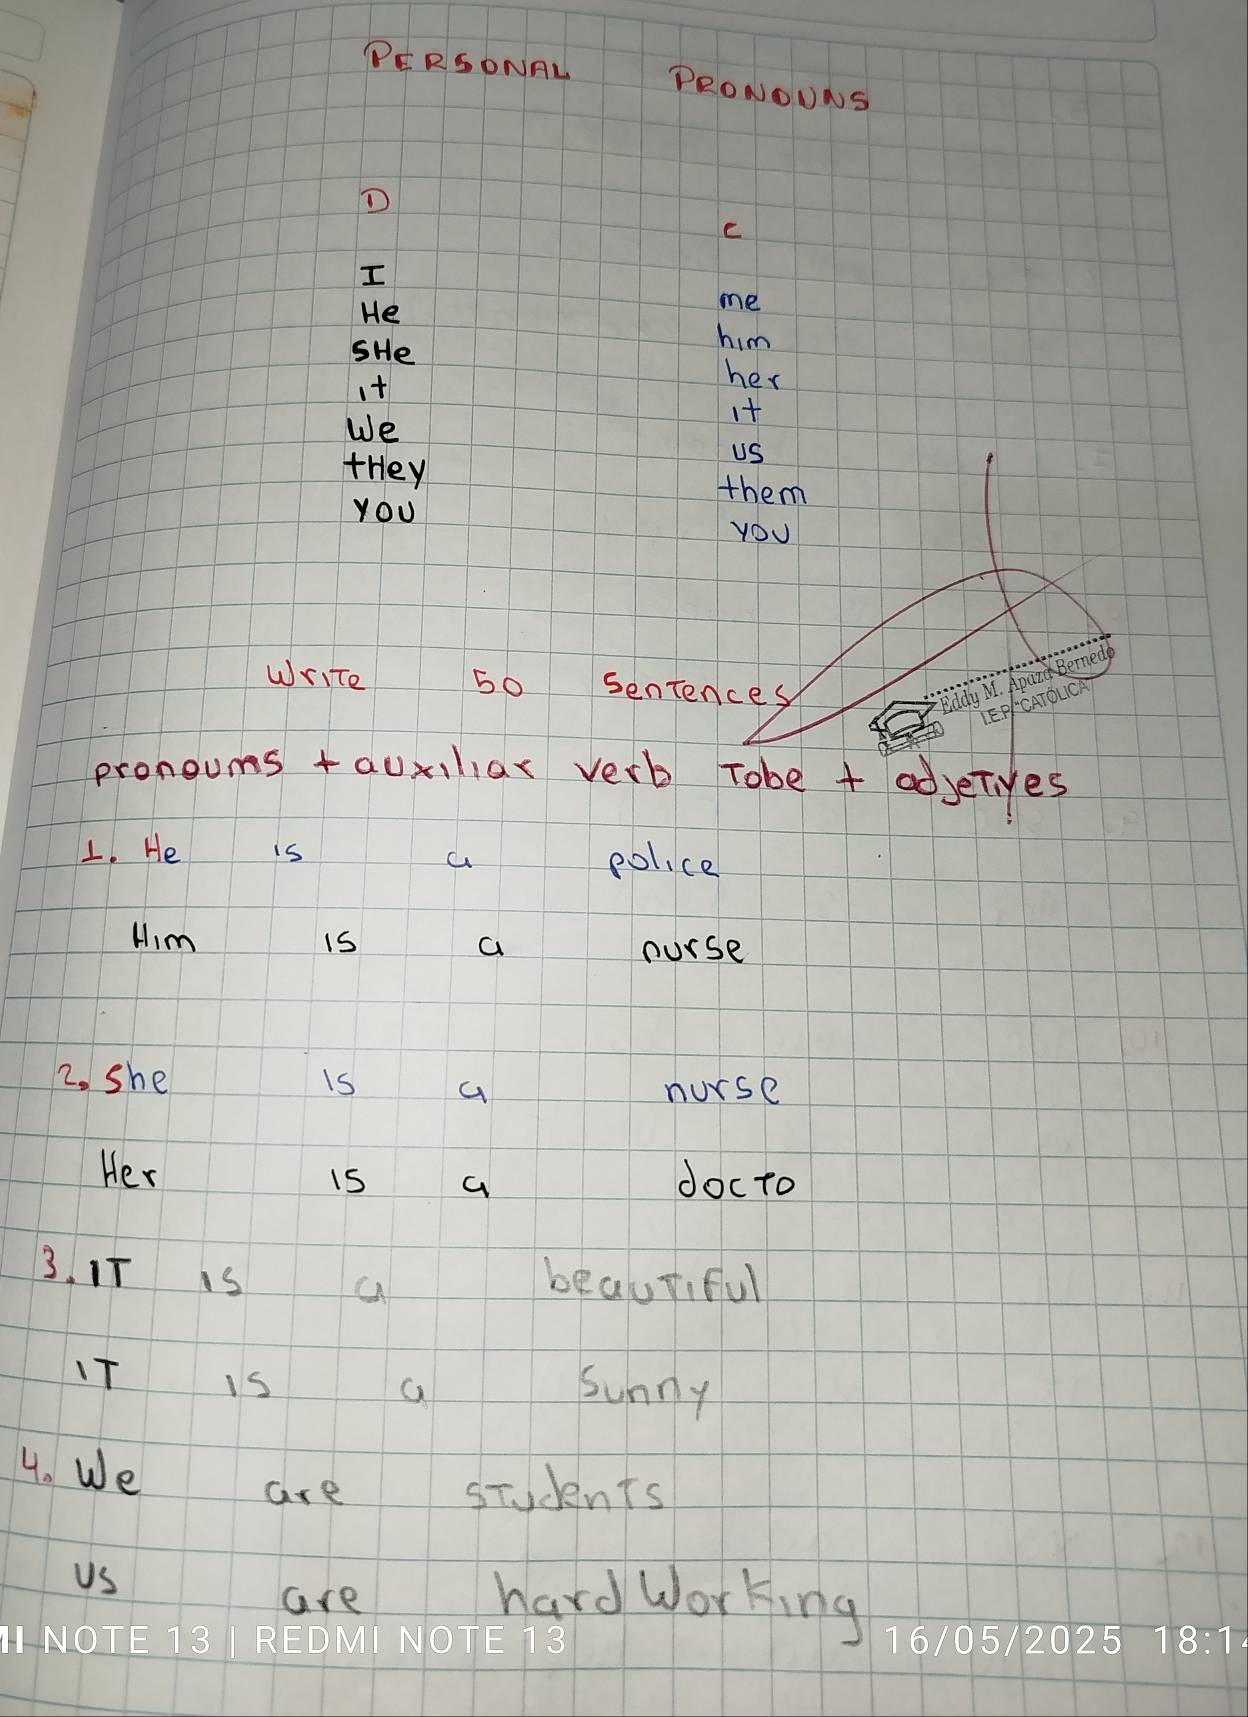 PERSONAL PRONOUNS
D C
I me
He him
SHe her
it it
We us
tHey them
you you
Write 50 Sentences
Eddy M. Apaza Bernedo
I.E.P. "CATÓLICA"
pronoums + auxiliar verb Tobe + adjeTives
1. He is a police
Him is a nurse
2. she is a nurse
Her is a docto
3. IT is a beauTiful
IT is a Sunny
4. We are sTudenTs
us are hardWorking
MI NOTE 13 | REDMI NOTE 13 16/05/2025 18:14